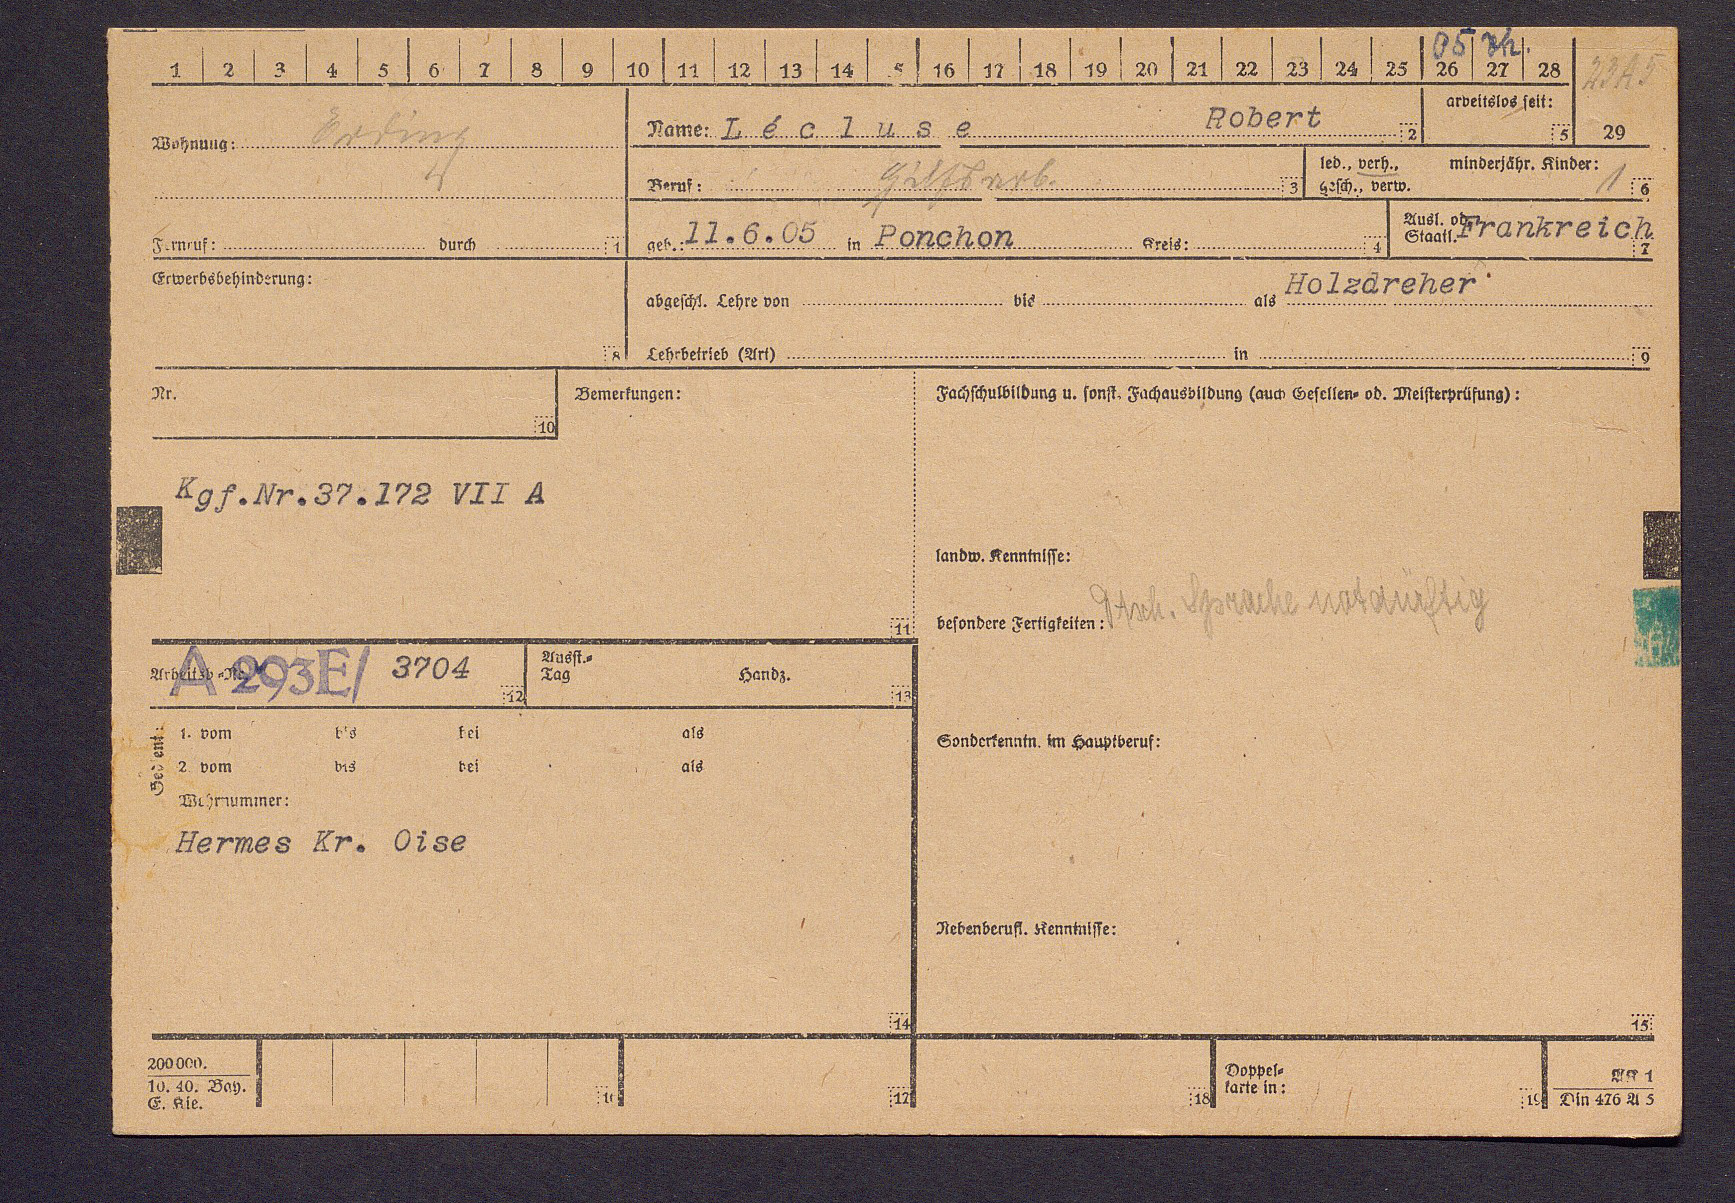 05 vh.
1 2 3 4 5 6 7 8 9 10 11 12 13 14 5 16 17 18 19 20 21 22 23 24 25 26 27 28
23A5
arbeitslos seit:
5 29
Wohnung: Erding
Name: L é c l u s e Robert 2
Beruf: Hilfsarb. 3
led., verh., minderjähr. Kinder:
gesch., verw. 1 6
Fernruf: durch 1
geb.: 11.6.05 in Ponchon Kreis: 4
Ausl. od.
Staatl. Frankreich
7
Erwerbsbehinderung:
8
abgeschl. Lehre von bis als Holzdreher
Lehrbetrieb (Art) in 9
Nr.
10
Bemerkungen:
Fachschulbildung u. sonst. Fachausbildung (auch Gesellen- od. Meisterprüfung):
Kgf.Nr.37.172 VII A
landw. Kenntnisse:
besondere Fertigkeiten: Dtsch. Sprache notdürftig
11
Arbeitsb.-Nr. A 293E/ 3704 12
Ausst.-
Tag Handz. 13
Gedient:
1. vom bis bei als
2. vom bis bei als
Wehrnummer:
Hermes Kr. Oise
Sonderkenntn. im Hauptberuf:
Nebenberufl. Kenntnisse:
14
15
200000.
10. 40. Bay.
E. Kie.
16 17 18
Doppel-
karte in: 19
AK 1
Din 476 A 5